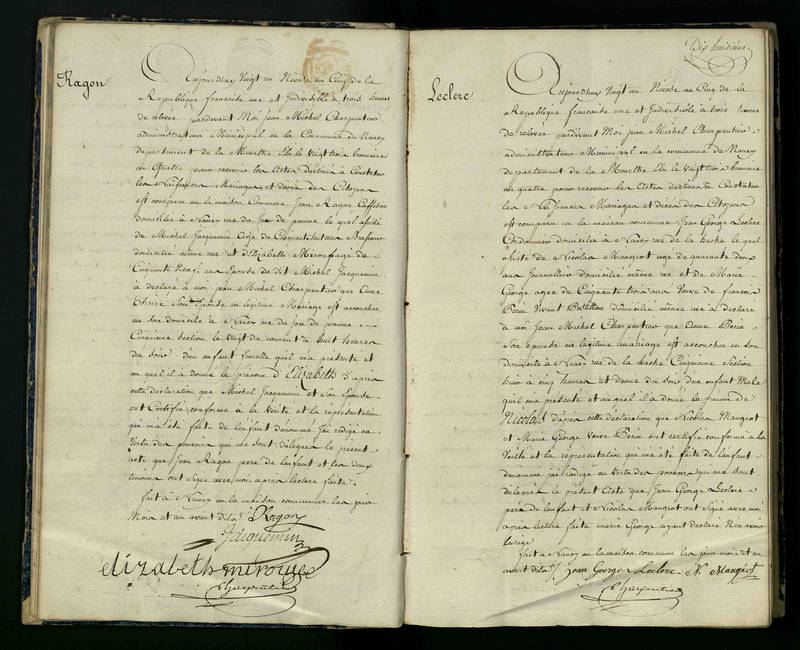 Ragon
Aujourdhuy Vingt un Nivose an Cinq de la
Republique francaise une et Indivisible à trois heures
de relevee pardevant Moi Jean Michel Charpentier
administrateur Municipal en la Commune de Nancy
departement de la Meurthe Elu le Vingt trois brumaire
an Quatre pour recevoir les Actes destinés à Constater
les Naissances Mariages et décès des Citoyens
est comparu en la maison Commune Jean Ragon
domicilié à Nancy rue du Jeu de paume le quel assisté
de Michel Jacquemin age de Cinquante huit ans
domicilié même rue et d'Elizabeth de
Cinquante Neuf ans Epouse du dit Michel Jacquemin
à déclaré à moi Jean Michel Charpentier que Anne
son Epouse en légitime Mariage est accouchée
en son domicile à Nancy rue du Jeu de paume
Cinquieme Section le Vingt du courant à huit heures
du soir d'un enfant femelle quil m'a présenté et
au quel il a donné le prénom d'Elizabeth d'après
cette déclaration que Michel Jacquemin et son Epouse
ont Certifié conforme à la Vérité et la représentation
qui m'a été faite de l'enfant dénommé J'ai rédigé en
Vertu des pouvoirs qui me sont délégués le présent
acte que Jean Ragon pere de l'enfant et les deux
témoins ont Signé avec moi après lecture faite
fait à Nancy en la maison commune les jour
Mois et an avant dits Ragon
Jacquemin
elizabeth
Charpentier
Dix huitieme
Leclerc
Aujourdhuy Vingt un Nivose an Cinq de la
Republique francaise une et Indivisible à trois heures
de relevee pardevant Moi Jean Michel Charpentier
administrateur Municipal en la commune de Nancy
departement de la Meurthe Elu le Vingt trois brumaire
an quatre pour recevoir les Actes destinés à Constater
les Naissances Mariages et décès des Citoyens
est comparu en la maison commune Jean George Leclerc
Cordonnier domicilié à Nancy rue de la hache le quel
assisté de Nicolas Mangeot age de quarante deux
ans Journalier domicilié même rue et de Marie
George agee de Cinquante trois ans Veuve de francois
Perin Vivant Postillon domiciliée même rue à déclaré
à moi Jean Michel Charpentier que Anne Perin
Son epouse en légitime mariage est accouchée en son
domicile à Nancy rue de la hache Cinquieme Section
hier à cinq heures et demie du soir d'un enfant Male
quil m'a présenté et au quel il a donné le prénom de
Nicolas d'après cette déclaration que Nicolas Mangeot
et Marie George Veuve Perin ont certifié conforme à la
Vérité et la représentation qui m'a été faite de l'enfant
dénommé j'ai rédigé en Vertu des pouvoirs qui me sont
délégués le présent Acte que Jean George Leclerc
pere de l'enfant et Nicolas Mangeot ont Signé avec moi
après lecture faite marie George ayant déclaré N'en avoir
l'usage
fait à Nancy en la maison commune les jour mois et an
avant dits Jean George Leclerc N. Mangeot
Charpentier